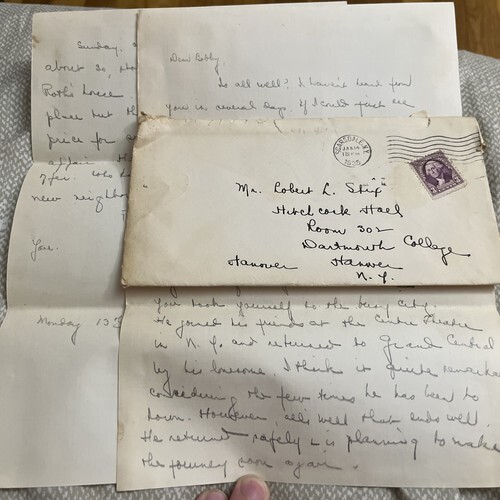 Sunday.
about 30,
Roth's house
place but th
price for a
affair. th
offer. Who
new neighbo
You.
Monday 13
Dear Bobby.
Is all well? I haven't heard from
you in several days. If I could just see
SCARSDALE, N.Y.
JAN 14
1935
Mr. Robert L. Stix
Hitchcock Hall
Room 302
Dartmouth College
Hanover Hanover
N. Y.
You took yourself to the busy city.
He joined his friends at the Centre Theatre
in N. Y. and returned to Grand Central
by his lonesome. I think it quite remarka
considering the few times he has been to
town. However, all's well that ends well.
He returned safely & is planning to make
the journey soon again.